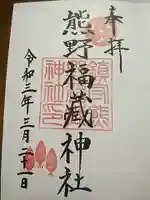 奉拝
熊野福藏神社
令和三年三月二十一日